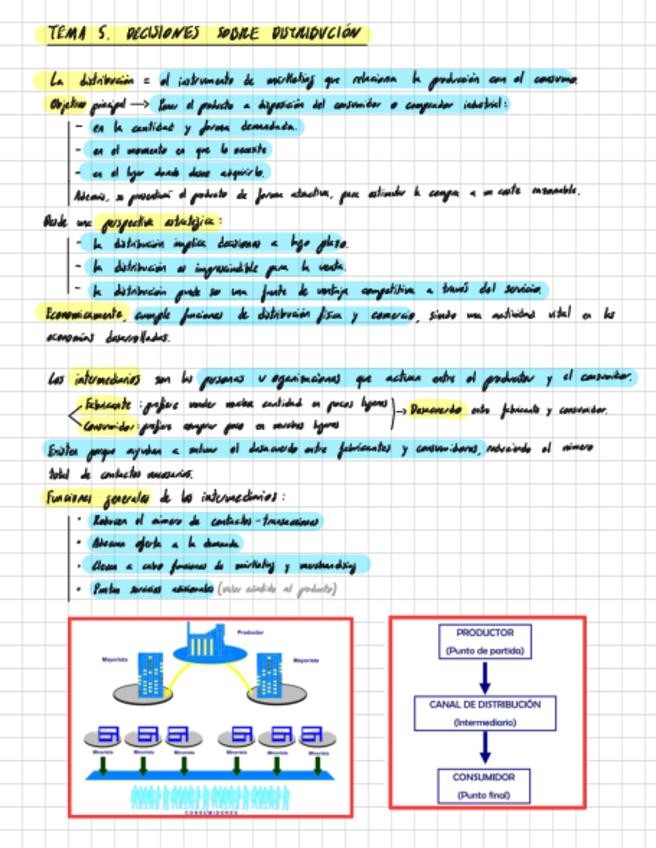 TEMA 5. DECISIONES SOBRE DISTRIBUCIÓN
La distribución = el instrumento de marketing que relaciona la producción con el consumo.
Objetivo principal → Poner el producto a disposición del consumidor o comprador industrial:
- en la cantidad y forma demandada.
- en el momento en que lo necesite
- en el lugar donde desea adquirirlo.
Además, se presentará el producto de forma atractiva, para estimular la compra a un coste razonable.
Desde una perspectiva estratégica:
- la distribución implica decisiones a largo plazo.
- la distribución es imprescindible para la venta.
- la distribución puede ser una fuente de ventaja competitiva a través del servicio.
Económicamente, cumple funciones de distribución física y comercio, siendo una actividad vital en las
economías desarrolladas.
Los intermediarios son las personas u organizaciones que actúan entre el productor y el consumidor.
Fabricante: prefiere vender mucha cantidad en pocos lugares
Consumidor: prefiere comprar poco en muchos lugares
→ Desacuerdo entre fabricante y consumidor.
Existen porque ayudan a salvar el desacuerdo entre fabricantes y consumidores, reduciendo el número
total de contactos necesarios.
Funciones generales de los intermediarios:
• Reducen el número de contactos - transacciones
• Adecuan oferta a la demanda
• Llevan a cabo funciones de marketing y merchandising
• Prestan servicios adicionales (valor añadido al producto)
Productor
Mayorista
Mayorista
Minorista Minorista Minorista Minorista Minorista Minorista
CONSUMIDORES
PRODUCTOR
(Punto de partida)
CANAL DE DISTRIBUCIÓN
(Intermediario)
CONSUMIDOR
(Punto final)